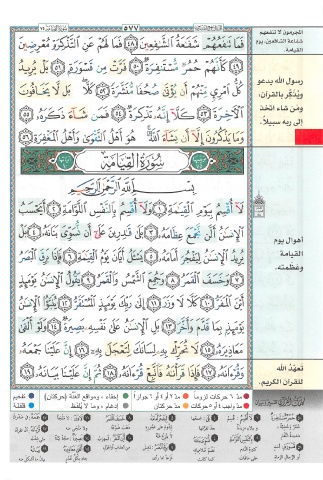 ٥٧٧
فَمَا تَنفَعُهُمْ شَفَٰعَةُ ٱلشَّٰفِعِينَ ٤٨ فَمَا لَهُمْ عَنِ ٱلتَّذْكِرَةِ مُعْرِضِينَ
٤٩ كَأَنَّهُمْ حُمُرٌ مُّسْتَنفِرَةٌ ٥٠ فَرَّتْ مِن قَسْوَرَةٍۭ ٥١ بَلْ يُرِيدُ
كُلُّ ٱمْرِئٍ مِّنْهُمْ أَن يُؤْتَىٰ صُحُفًا مُّنَشَّرَةً ٥٢ كَلَّا بَل لَّا يَخَافُونَ
ٱلْءَاخِرَةَ ٥٣ كَلَّآ إِنَّهُۥ تَذْكِرَةٌ ٥٤ فَمَن شَآءَ ذَكَرَهُۥ ٥٥
وَمَا يَذْكُرُونَ إِلَّآ أَن يَشَآءَ ٱللَّهُ هُوَ أَهْلُ ٱلتَّقْوَىٰ وَأَهْلُ ٱلْمَغْفِرَةِ ٥٦
سُورَةُ الْقِيَامَةِ
بِسْمِ ٱللَّهِ ٱلرَّحْمَٰنِ ٱلرَّحِيمِ
لَآ أُقْسِمُ بِيَوْمِ ٱلْقِيَٰمَةِ ١ وَلَآ أُقْسِمُ بِٱلنَّفْسِ ٱللَّوَّامَةِ ٢ أَيَحْسَبُ
ٱلْإِنسَٰنُ أَلَّن نَّجْمَعَ عِظَامَهُۥ ٣ بَلَىٰ قَٰدِرِينَ عَلَىٰٓ أَن نُّسَوِّىَ بَنَانَهُۥ ٤ بَلْ
يُرِيدُ ٱلْإِنسَٰنُ لِيَفْجُرَ أَمَامَهُۥ ٥ يَسْـَٔلُ أَيَّانَ يَوْمُ ٱلْقِيَٰمَةِ ٦ فَإِذَا بَرِقَ ٱلْبَصَرُ
٧ وَخَسَفَ ٱلْقَمَرُ ٨ وَجُمِعَ ٱلشَّمْسُ وَٱلْقَمَرُ ٩ يَقُولُ ٱلْإِنسَٰنُ يَوْمَئِذٍ
أَيْنَ ٱلْمَفَرُّ ١٠ كَلَّا لَا وَزَرَ ١١ إِلَىٰ رَبِّكَ يَوْمَئِذٍ ٱلْمُسْتَقَرُّ ١٢ يُنَبَّؤُا۟ ٱلْإِنسَٰنُ
يَوْمَئِذٍۭ بِمَا قَدَّمَ وَأَخَّرَ ١٣ بَلِ ٱلْإِنسَٰنُ عَلَىٰ نَفْسِهِۦ بَصِيرَةٌ ١٤ وَلَوْ أَلْقَىٰ
مَعَاذِيرَهُۥ ١٥ لَا تُحَرِّكْ بِهِۦ لِسَانَكَ لِتَعْجَلَ بِهِۦٓ ١٦ إِنَّ عَلَيْنَا جَمْعَهُۥ
وَقُرْءَانَهُۥ ١٧ فَإِذَا قَرَأْنَٰهُ فَٱتَّبِعْ قُرْءَانَهُۥ ١٨ ثُمَّ إِنَّ عَلَيْنَا بَيَانَهُۥ ١٩
المجرمون لا تنفعهم
شفاعة الشافعين يوم
القيامة.
رسول الله يدعو
ويُذَكِّر بالقرآن،
ومَن شاء اتخذ
إلى ربه سبيلاً.
أهوال يوم
القيامة
وعظمته.
تَعهّدُ الله
للقرآن الكريم.
مدّ ٦ حركات لزوماً
مدّ ٢ أو ٤ أو ٦ جوازاً
إخفاء، ومواقع الغنّة (حركتان)
تفخيم
مدّ واجب ٤ أو ٥ حركات
مدّ حركتان
إدغام، وما لا يُلفَظ
قلقلة